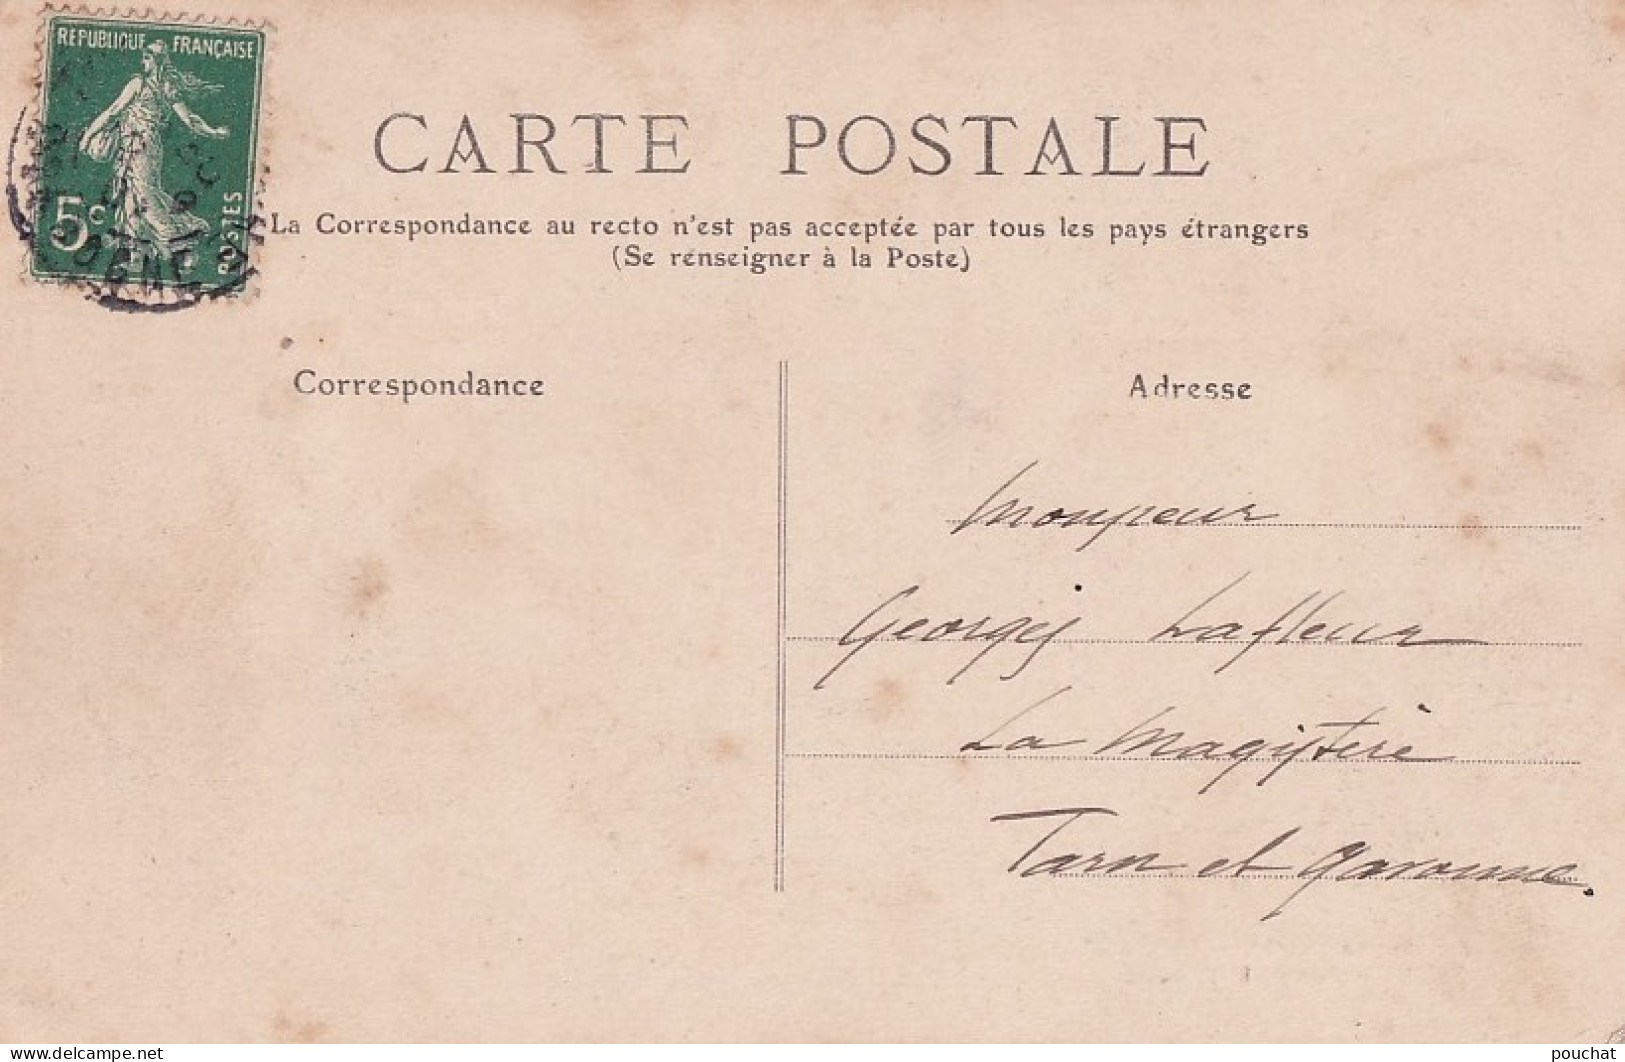 REPUBLIQUE FRANÇAISE
5c
POSTES
CARTE POSTALE
La Correspondance au recto n'est pas acceptée par tous les pays étrangers
(Se renseigner à la Poste)
Correspondance
Adresse
Monsieur
Georges Lafleur
La Magistère
Tarn et Garonne.
delcampe.net
pouchat